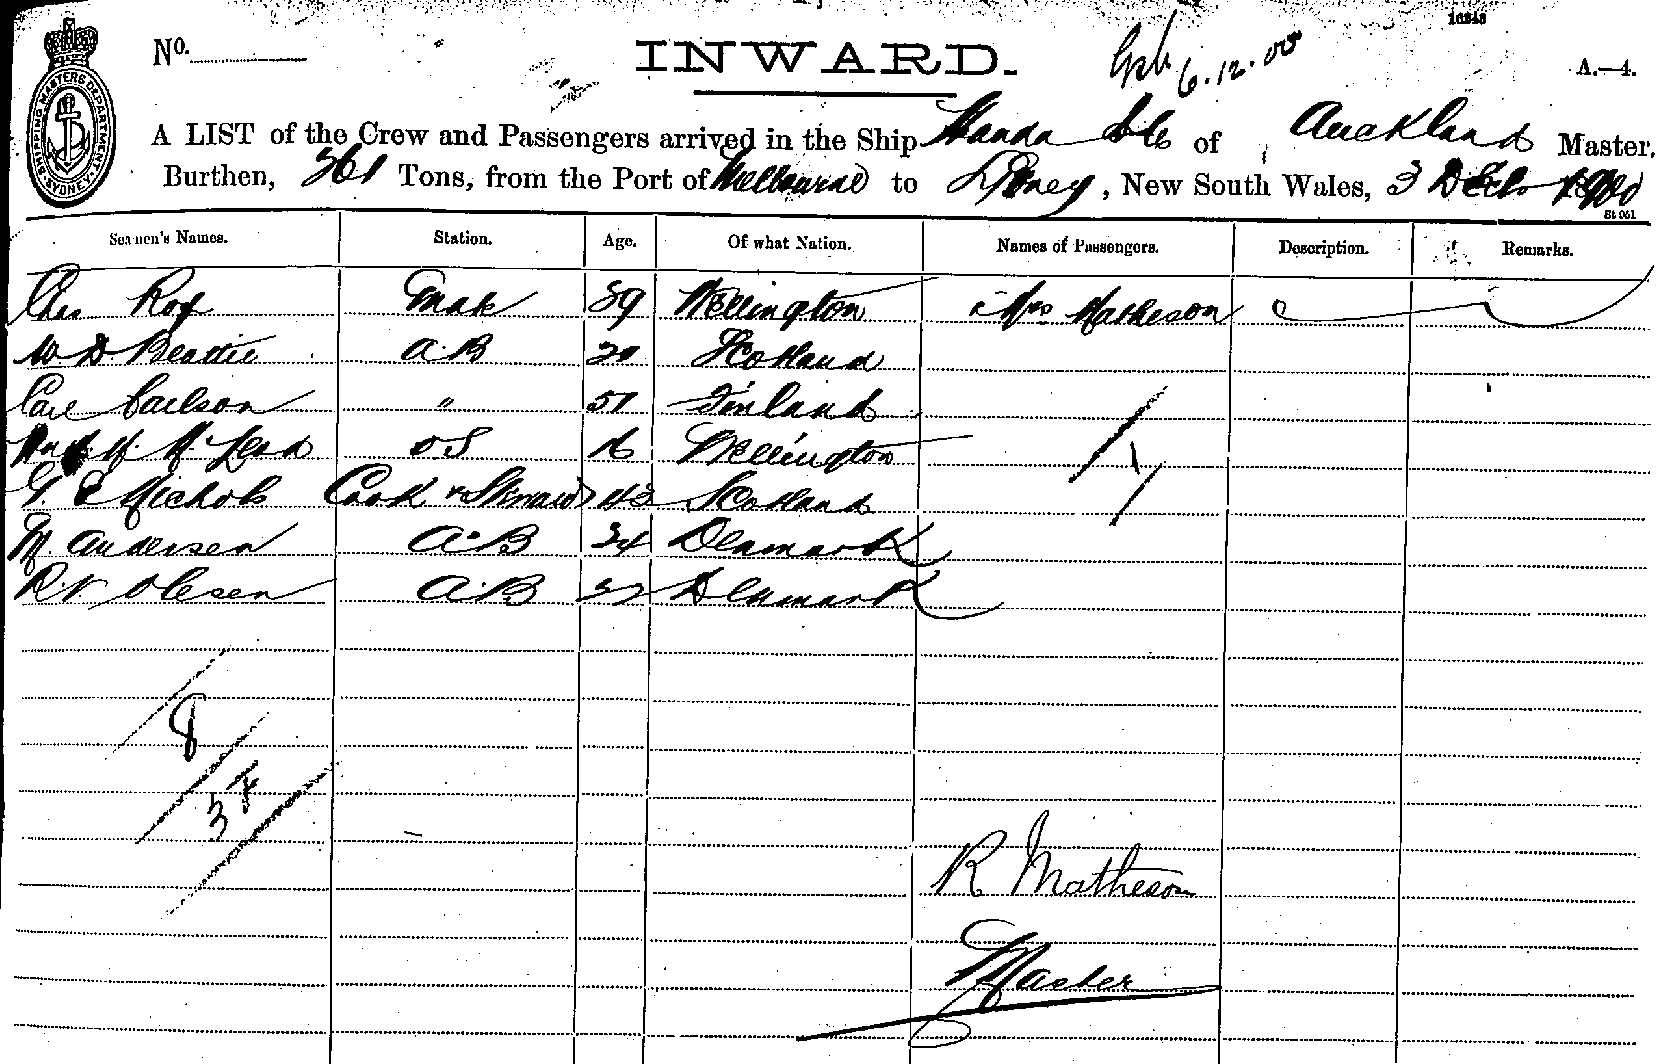 16248
No.
INWARD.
6.12.00
A.—4.
SHIPPING MASTERS DEPARTMENT. SYDNEY.
A LIST of the Crew and Passengers arrived in the Ship Handa Isle of Auckland Master,
Burthen, 361 Tons, from the Port of Melbourne to Sydney, New South Wales, 3 Decr 1900
St 061
Seamen's Names. Station. Age. Of what Nation. Names of Passengers. Description. Remarks.
Chas Rox Mate 39 Wellington Mrs Matheson
W D Beattie A B 20 Scotland
Carl Carlson " 51 Finland
M. McLeod O S 16 Wellington
G. E Nichols Cook & Steward 43 Scotland
M. Andersen A.B 24 Denmark
R. N Olesen A.B Denmark
8
3 F
R Matheson
Master